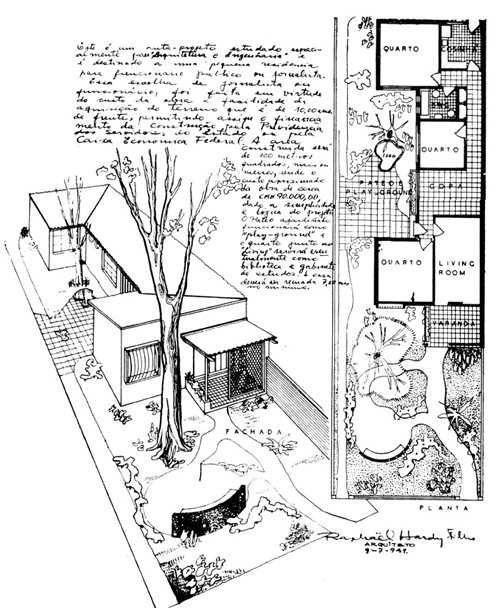 Este é um ante-projeto estudado especi-
almente para "Arquitetura e Engenharia" e
é destinado a uma pequena residência
para funcionário público ou jornalista.
Essa escolha de jornalista ou
funcionário, foi feita em virtude
do custo da obra e facilidade de
aquisição do terreno que é de 10,00 ms
de frente, permitindo assim o financia-
mento da construção pela Previdencia
dos Servidores do Estado ou pela
Caixa Economica Federal. A area
construida será
de 100 metros
quadrados, mais ou
menos, sendo o
custo aproximado
da obra de cerca
de CR$ 90.000,00,
dado a simplicidade
e logica do projeto
O Patio ajardinado
funcionará como
"play-ground" e
o quarto junto ao
"living" servirá
como
biblioteca e gabinete
de estudos. A casa
deverá ser recuada 7,00 ms
no minimo.
QUARTO
COSINHA
QUARTO
PATEO E
PLAY-GROUND
COPA
QUARTO
LIVING
ROOM
VARANDA
FACHADA
PLANTA
Raphaël Hardy Filho
ARQUITETO
9-7-947.